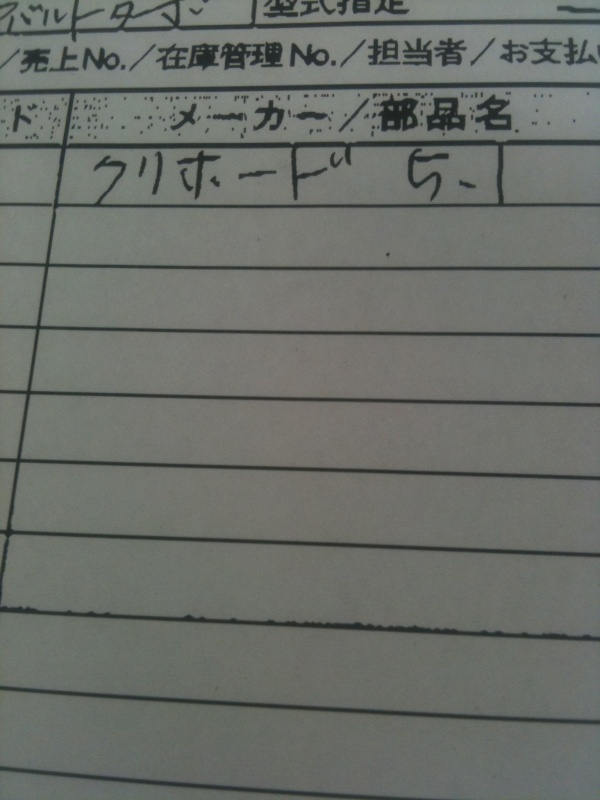 バルトターボ 型式指定
／売上No.／在庫管理No.／担当者／お支払い
ド メーカー／部品名
クリホード 5.